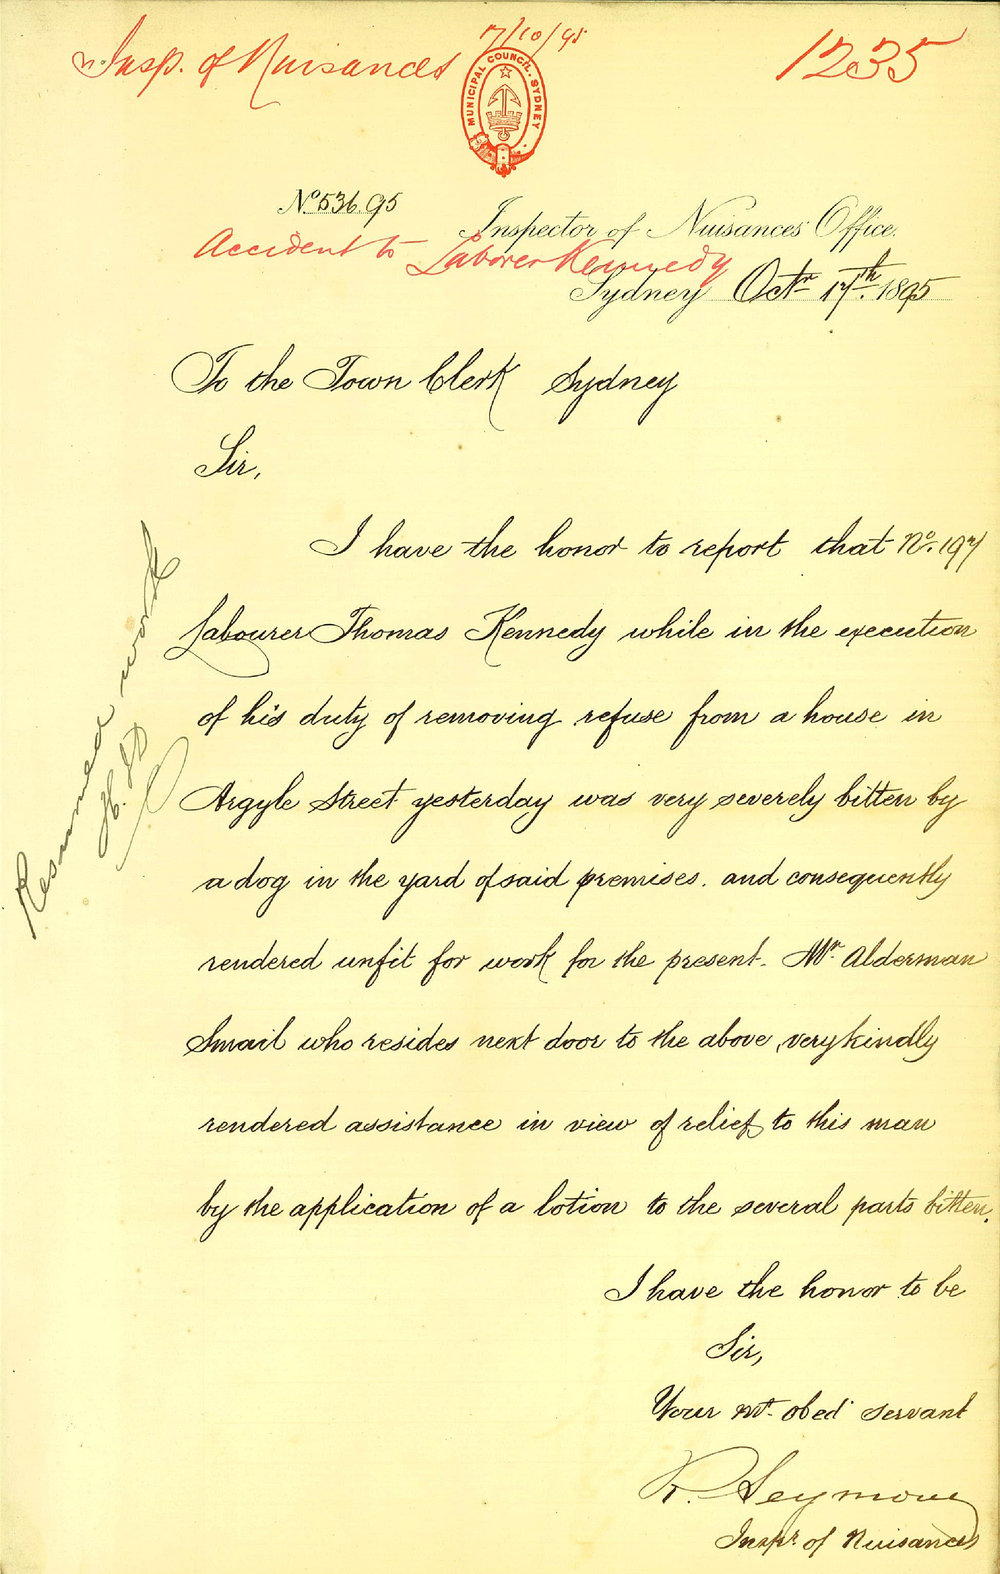 Insp. of Nuisances
17/10/95
1235
MUNICIPAL COUNCIL. SYDNEY
No. 536.95
Inspector of Nuisances Office.
Accident to Laborer Kennedy
Sydney Octr 17th. 1895
To the Town Clerk Sydney
Sir,
I have the honor to report that No. 197
Labourer Thomas Kennedy while in the execution
of his duty of removing refuse from a house in
Argyle Street yesterday was very severely bitten by
a dog in the yard of said premises. and consequently
rendered unfit for work for the present. Mr. Alderman
Smail who resides next door to the above, very kindly
rendered assistance in view of relief to this man
by the application of a lotion to the several parts bitten.
I have the honor to be
Sir,
Your mt. obed servant
R. Seymour
Inspr. of Nuisances
Resumed work